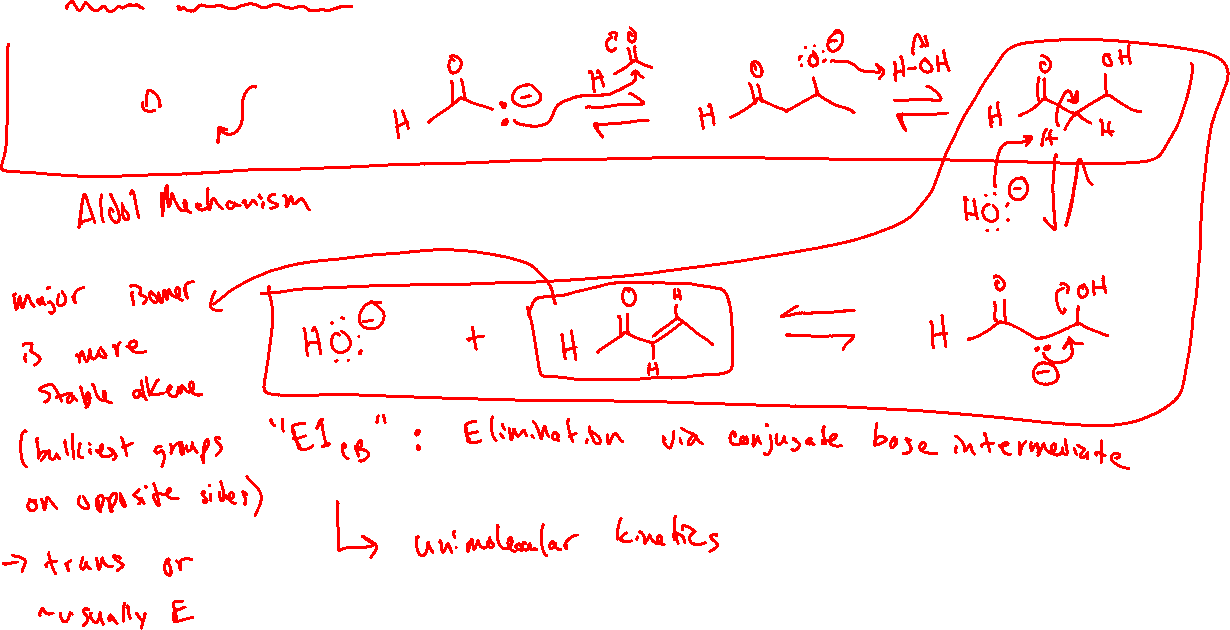 O
H
⊖
H
O
O
H
:Ö:⊖
H-OH
O
OH
H
H
H
HÖ:⊖
Aldol Mechanism
major isomer
is more
stable alkene
(bulkiest groups
on opposite sides)
→ trans or
~usually E
HÖ:⊖
+
H
O
H
H
H
O
OH
⊖
"E1CB" : Elimination via conjugate base intermediate
↳ unimolecular kinetics